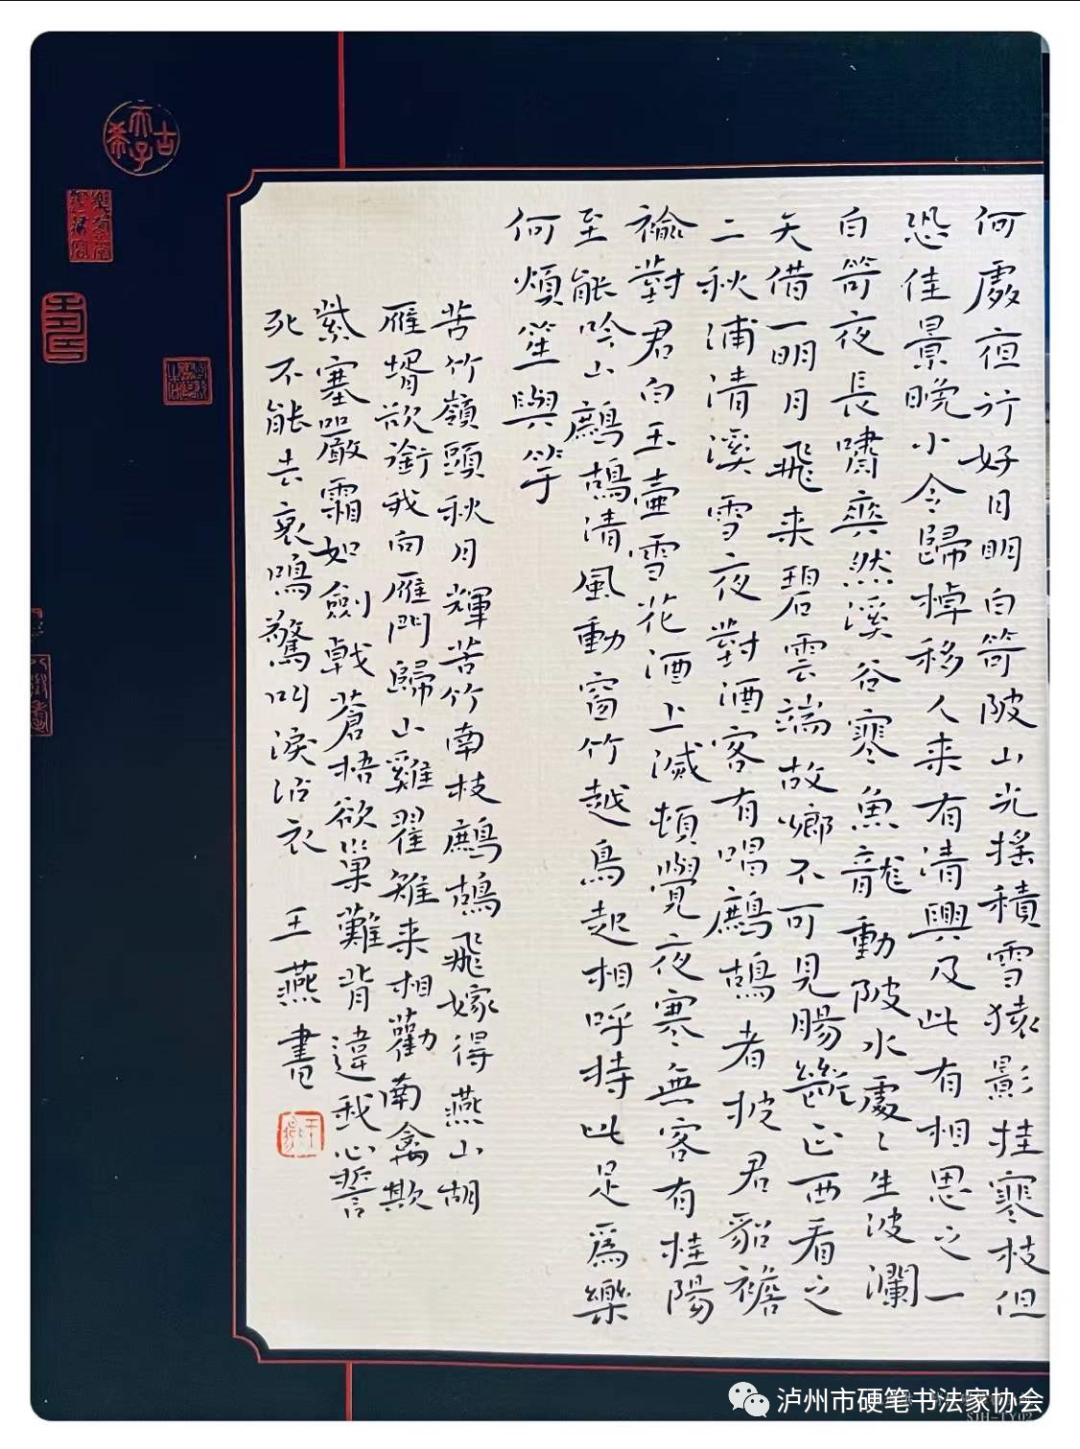 何處夜行好月明白笴陂山光搖積雪猿影挂寒枝但
恐佳景晚小令歸棹移人来有清興及此有相思之一
白笴夜長嘯爽然溪谷寒魚龍動陂水處々生波瀾
天借一明月飛来碧雲端故鄉不可見腸斷正西看之
二秋浦清溪雪夜對酒客有唱鷓鴣者披君貂襜
褕對君白玉壺雪花酒上滅頓覺夜寒無客有桂陽
至能吟山鷓鴣清風動窗竹越鳥起相呼持此足爲樂
何煩笙與竽
苦竹嶺頭秋月輝苦竹南枝鷓鴣飛嫁得燕山胡
雁壻欲銜我向雁門歸山雞翟雉来相勸南禽欺
紫塞嚴霜如劍戟蒼梧欲巢難背違我心誓
死不能去哀鳴驚叫淚沾衣 王燕書
古希天子
泸州市硬笔书法家协会